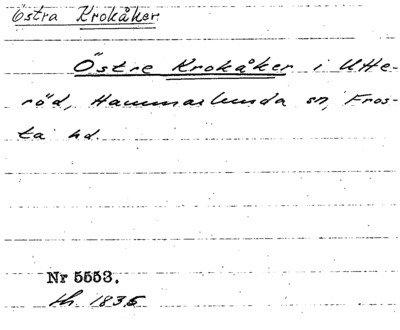 Östra Krokåker
Östre Krokåker i Utte-
röd, Hammarlunda sn, Fros-
ta hd.
Nr 5553.
1835